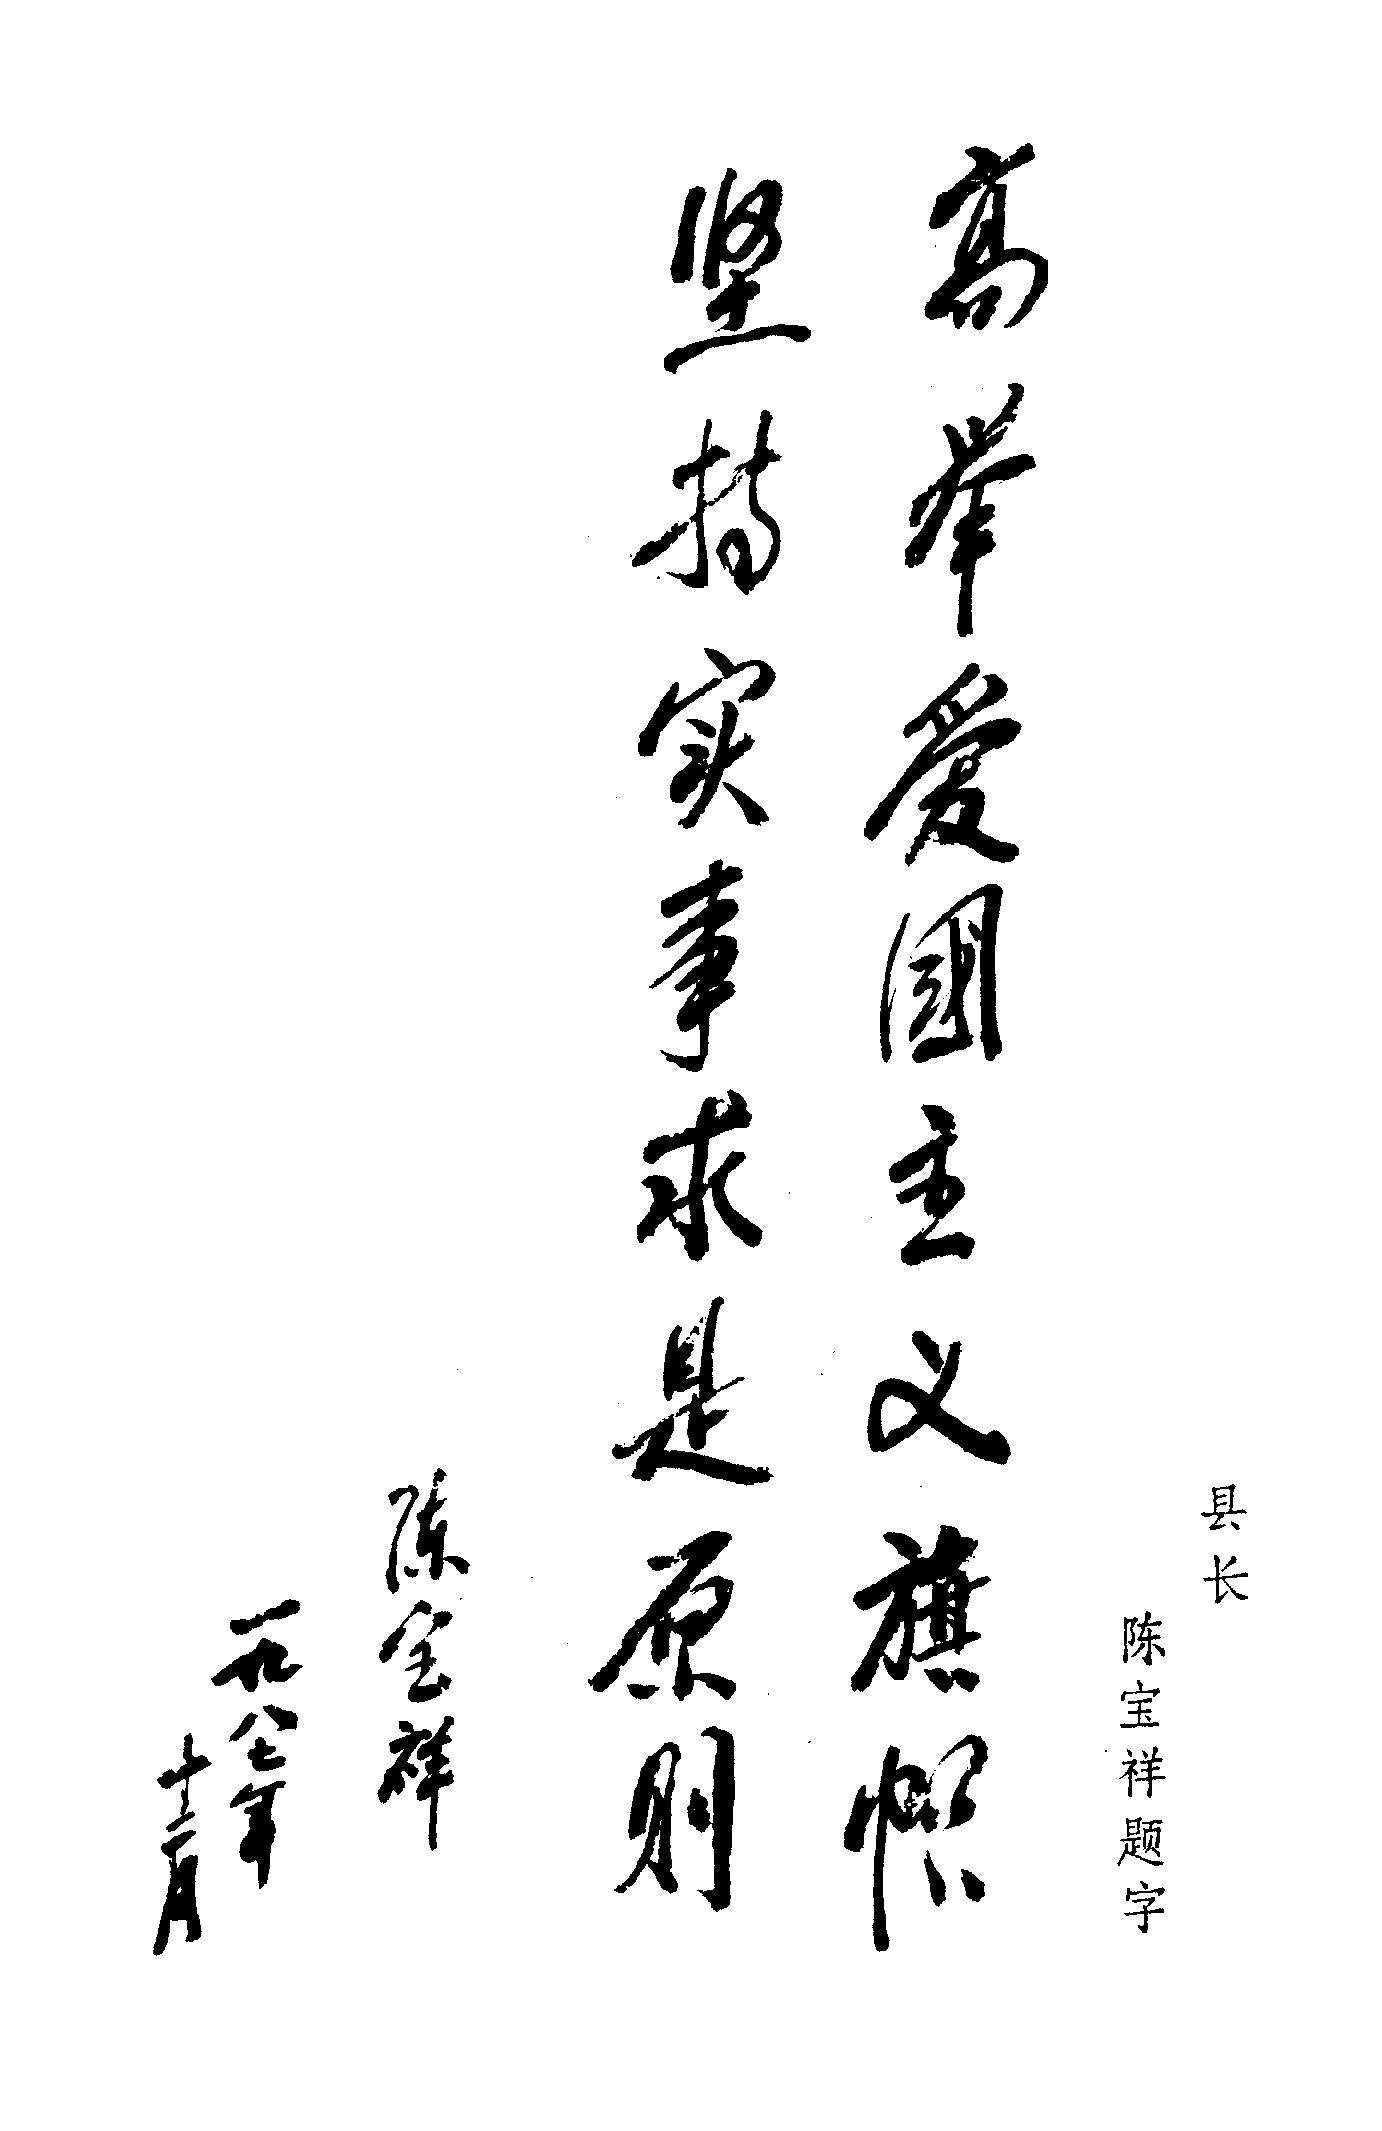 县长
陈宝祥题字
高举爱國主义旗帜
坚持实事求是原则
陈宝祥
一九八七年
十二月